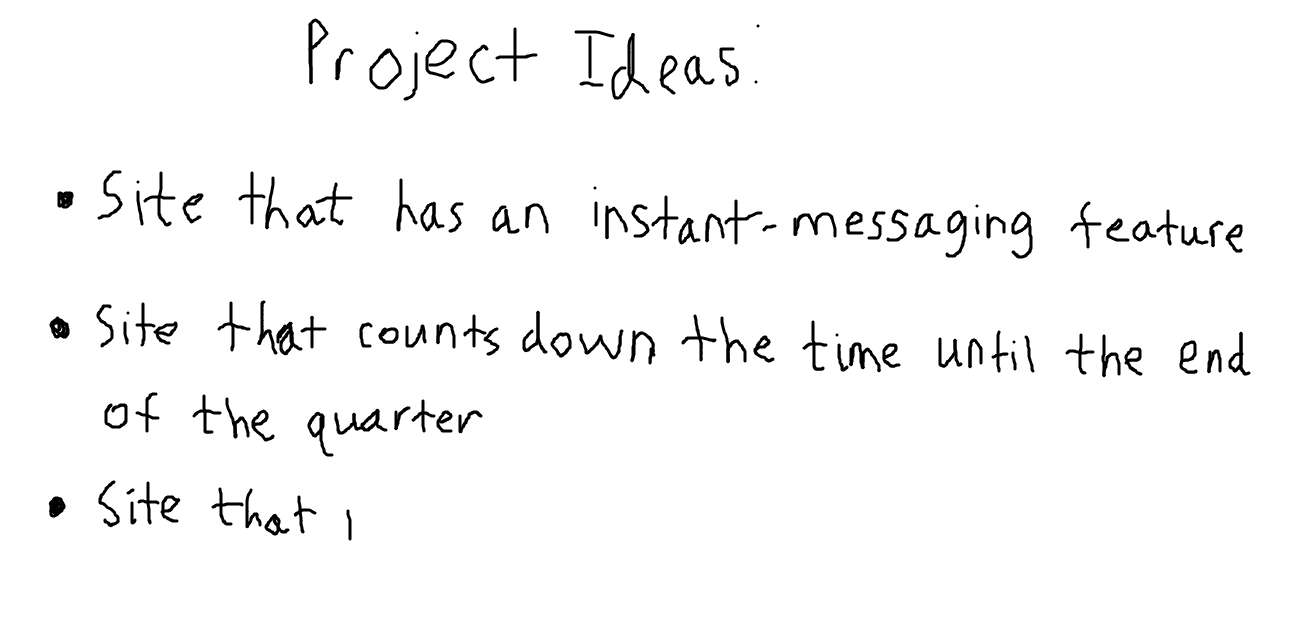 Project Ideas:
• Site that has an instant-messaging feature
• Site that counts down the time until the end
of the quarter
• Site that